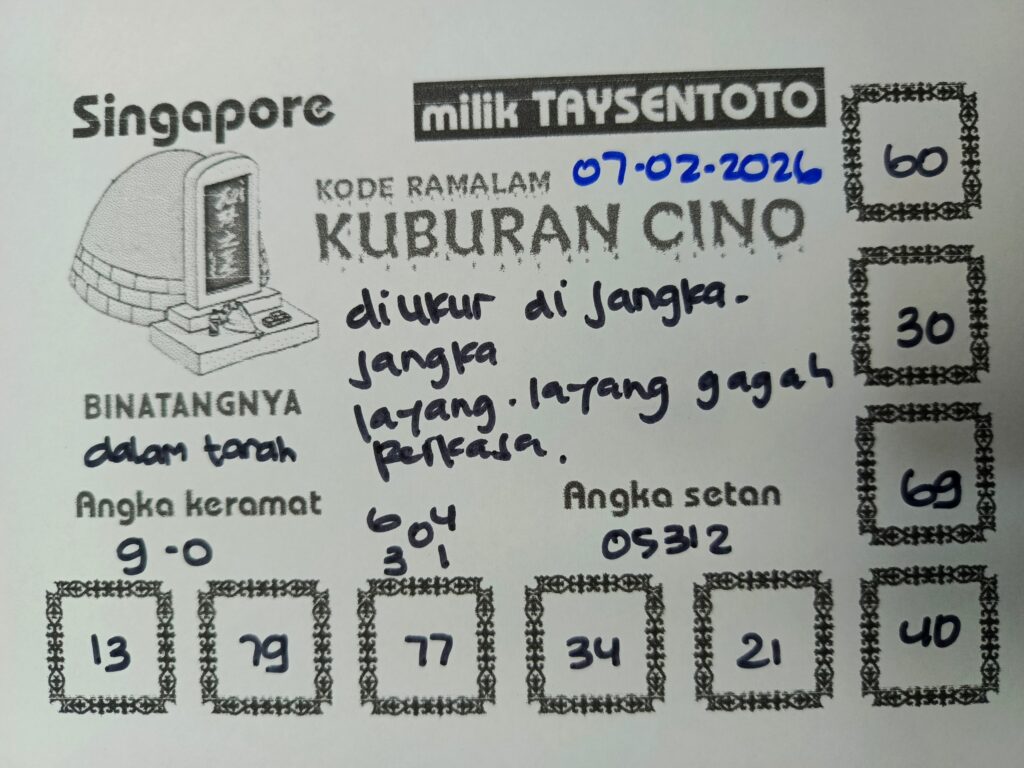 Singapore
milik TAYSENTOTO
07-02-2026
KODE RAMALAM
KUBURAN CINO
diukur di jangka.
jangka
layang. layang gagah
perkasa.
BINATANGNYA
dalam tanah
Angka keramat
9-0
6 04
3 1
Angka setan
05312
60
30
69
40
13
79
77
34
21